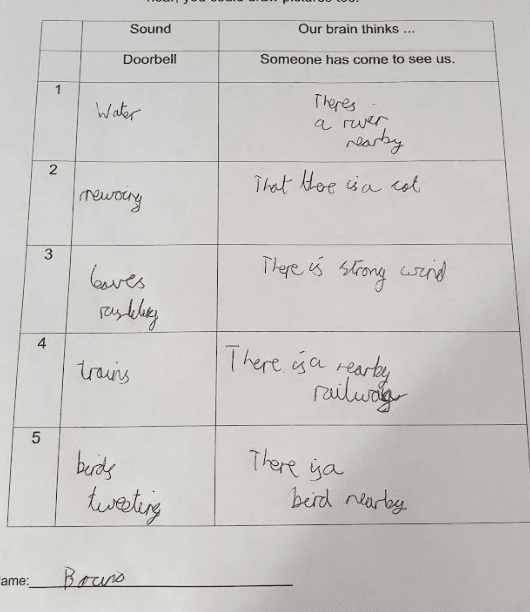 hear, you could draw pictures too.
Sound
Our brain thinks ...
Doorbell
Someone has come to see us.
1
Water
Theres
a river
nearby
2
mewoing
That there is a cat
3
leaves
rustleling
There is strong wind
4
trains
There is a nearby
railway
5
birds
tweeting
There is a
beird nearby
ame: